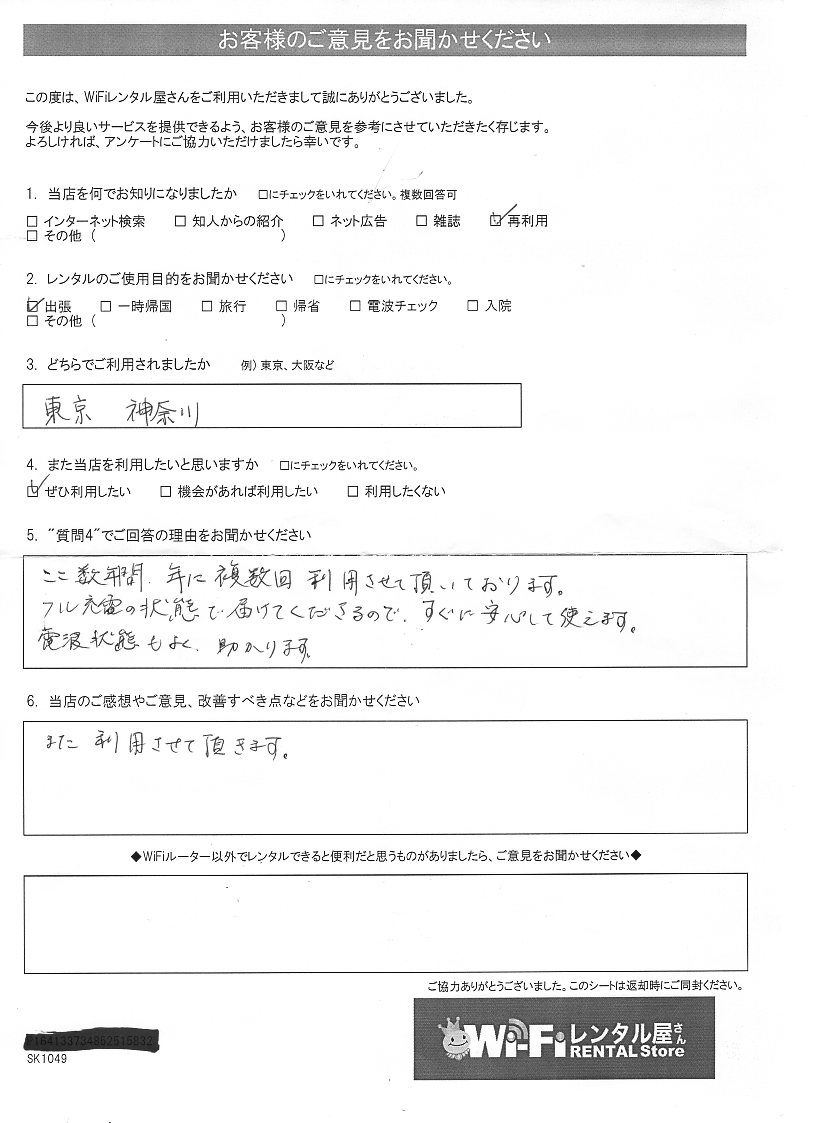 お客様のご意見をお聞かせください
この度は、WiFiレンタル屋さんをご利用いただきまして誠にありがとうございました。
今後より良いサービスを提供できるよう、お客様のご意見を参考にさせていただきたく存じます。
よろしければ、アンケートにご協力いただけましたら幸いです。
1. 当店を何でお知りになりましたか □にチェックをいれてください。複数回答可
□ インターネット検索 □ 知人からの紹介 □ ネット広告 □ 雑誌 ☑ 再利用
□ その他 ( )
2. レンタルのご使用目的をお聞かせください □にチェックをいれてください。
☑ 出張 □ 一時帰国 □ 旅行 □ 帰省 □ 電波チェック □ 入院
□ その他 ( )
3. どちらでご利用されましたか 例) 東京、大阪など
東京 神奈川
4. また当店を利用したいと思いますか □にチェックをいれてください。
☑ ぜひ利用したい □ 機会があれば利用したい □ 利用したくない
5. "質問4"でご回答の理由をお聞かせください
ここ数年間、年に複数回利用させて頂いております。
フル充電の状態で届けてくださるので、すぐに安心して使えます。
電波状態もよく、助かります。
6. 当店のご感想やご意見、改善すべき点などをお聞かせください
また利用させて頂きます。
◆WiFiルーター以外でレンタルできると便利だと思うものがありましたら、ご意見をお聞かせください◆
ご協力ありがとうございました。このシートは返却時にご同封ください。
Wi-Fi レンタル屋さん
RENTAL Store
SK1049